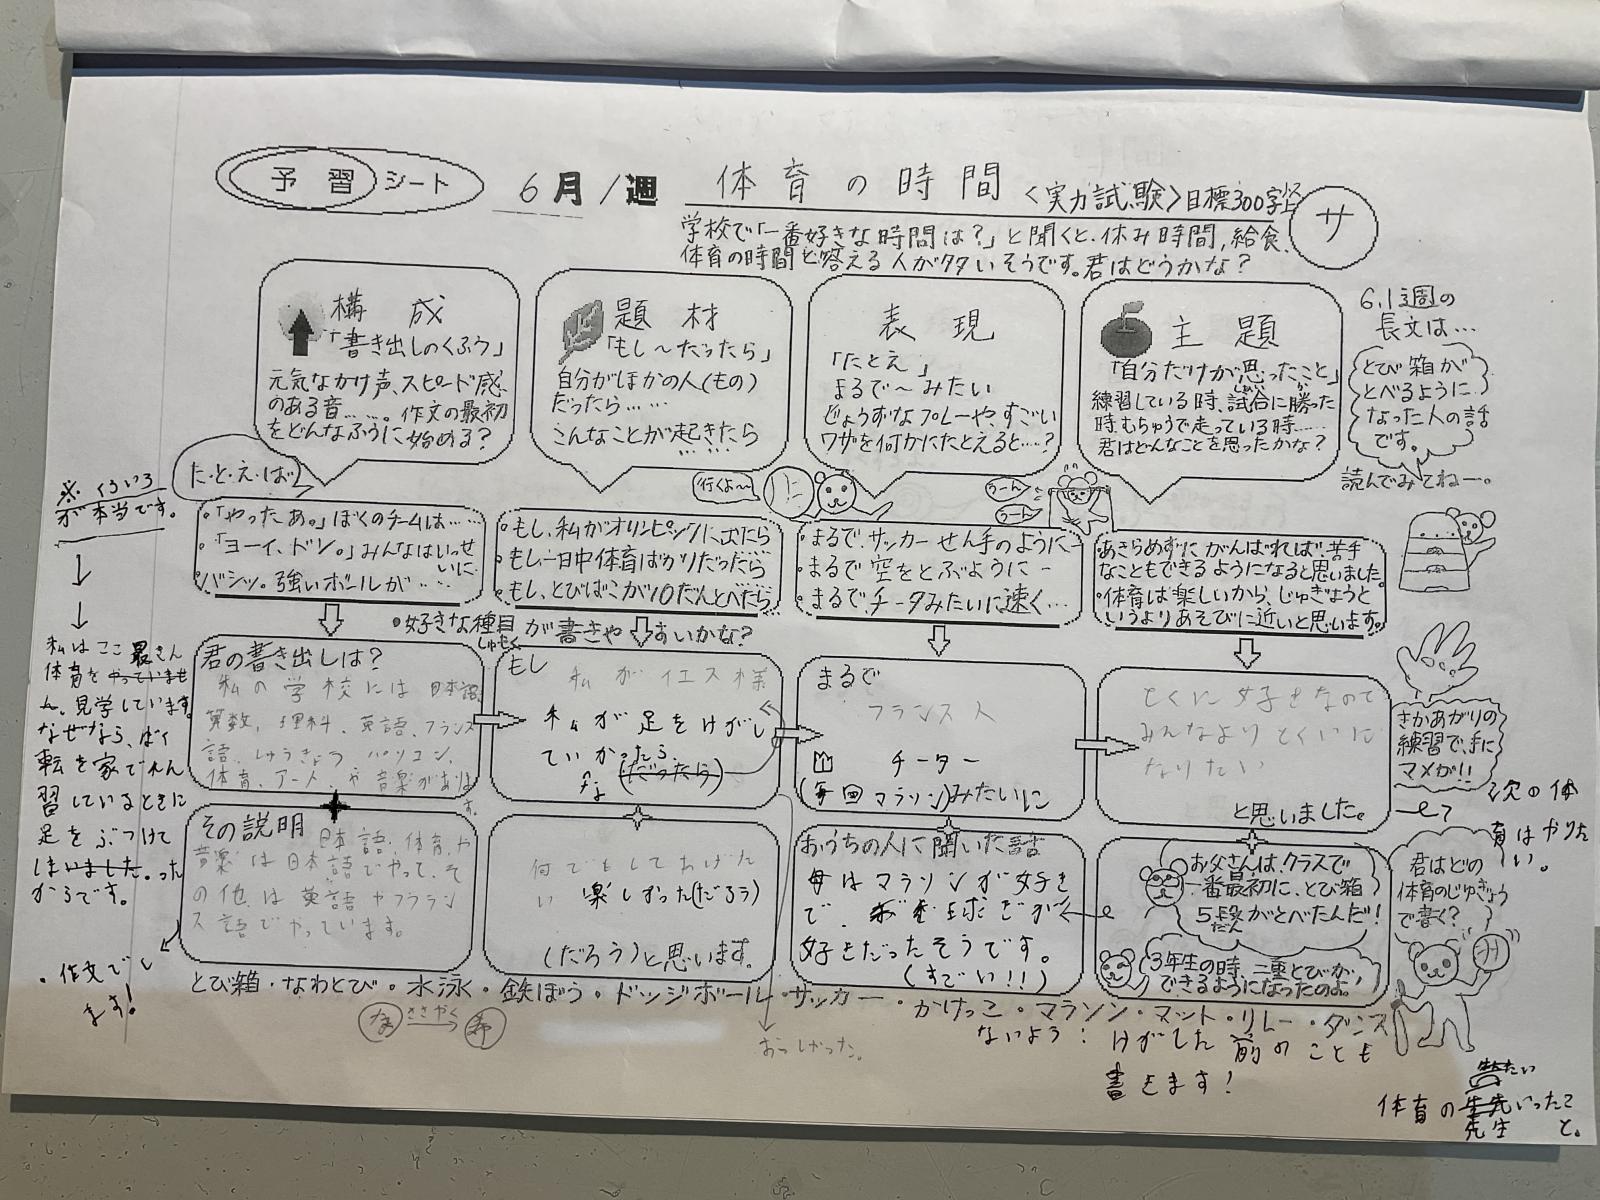 予習シート
6月1週
体育の時間
<実力試験>目標300字以上
サ
学校で「一番好きな時間は？」と聞くと、休み時間、給食、
体育の時間と答える人が多いそうです。君はどうかな？
構成
「書き出しのくふう」
元気なかけ声、スピード感
のある音……。作文の最初
をどんなふうに始める？
題材
「もし～だったら」
自分がほかの人(もの)
だったら……
こんなことが起きたら
……
表現
「たとえ」
まるで～みたい
じょうずなプレーや、すごい
ワザを何かにたとえると…？
主題
「自分だけが思ったこと」
練習している時、試合に勝った
時、むちゅうで走っている時……
君はどんなことを思ったかな？
6.1週の
長文は…
とび箱が
とべるように
なった人の話
です。
読んでみてねー。
た・と・え・ば
行くよ～
うーん
うーん
・「やったあ。」ぼくのチームは……
・「ヨーイ、ドン。」みんなはいっせ
いに…
バシッ。強いボールが……
・もし、私がオリンピックに出たら
・もし、一日中体育ばかりだったら
・もし、とびばこが10だんとべたら
・まるで、サッカーせん手のように―
・まるで空をとぶように―
・まるで、チータみたいに速く…
あきらめずにがんばれば、苦手
なこともできるようになると思いました。
・体育は楽しいから、じゅぎょうと
いうよりあそびに近いと思います。
・好きな種目が書きやすいかな？
しゅもく
※くろいろ
が本当です。
私はここ最きん
体育をやっていませ
ん。見学しています。
なぜなら、
転を家でれん
習しているときに
足をぶつけて
しまいました。った
からです。
・作文でし
ます！
君の書き出しは？
私の学校には日本語
算数、理科、英語、フランス
語、しゅうきょう パソコン、
体育、アート、や音楽がありま
す。
その説明
日本語、体育、や
音楽は日本語でやって、そ
の他は英語やフランス
語でやっています。
もし
私がイエス様
私が足をけがし
ていかったら
(だったら)
何でもしてあげた
い 楽しかった(だろう)
(だろう)と思います。
まるで
フランス人
チーター
(毎回マラソン)みたいに
おうちの人に聞いた話
母はマラソンが好き
で、球ぎが
好きだったそうです。
(すごい!!)
とくに好きなので
みんなよりとくいに
なりたい
と思いました。
次の体
育はやりた
い。
お父さんは、クラスで
一番最初に、とび箱
5段がとべたんだ！
だん
3年生の時、二重とびが
できるようになったのよ。
さかあがりの
練習で、手に
マメが!!
君はどの
体育のじゅぎょう
で書く？
とび箱・なわとび・水泳・鉄ぼう・ドッジボール・サッカー・かけっこ・マラソン・マット・リレー・ダンス
おっしゃった。
ないよう：けがした前のことも
書きます！
体育の先生いったこ
と。